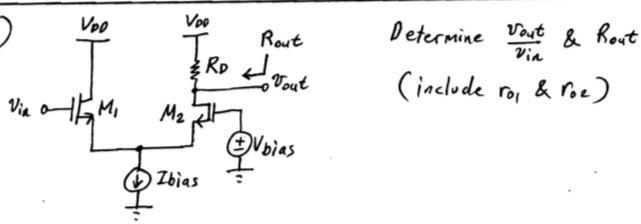 )
VDD
VDD
Rout
RD
vout
vin
M1
M2
Vbias
Ibias
Determine vout/vin & Rout
(include ro1 & ro2)